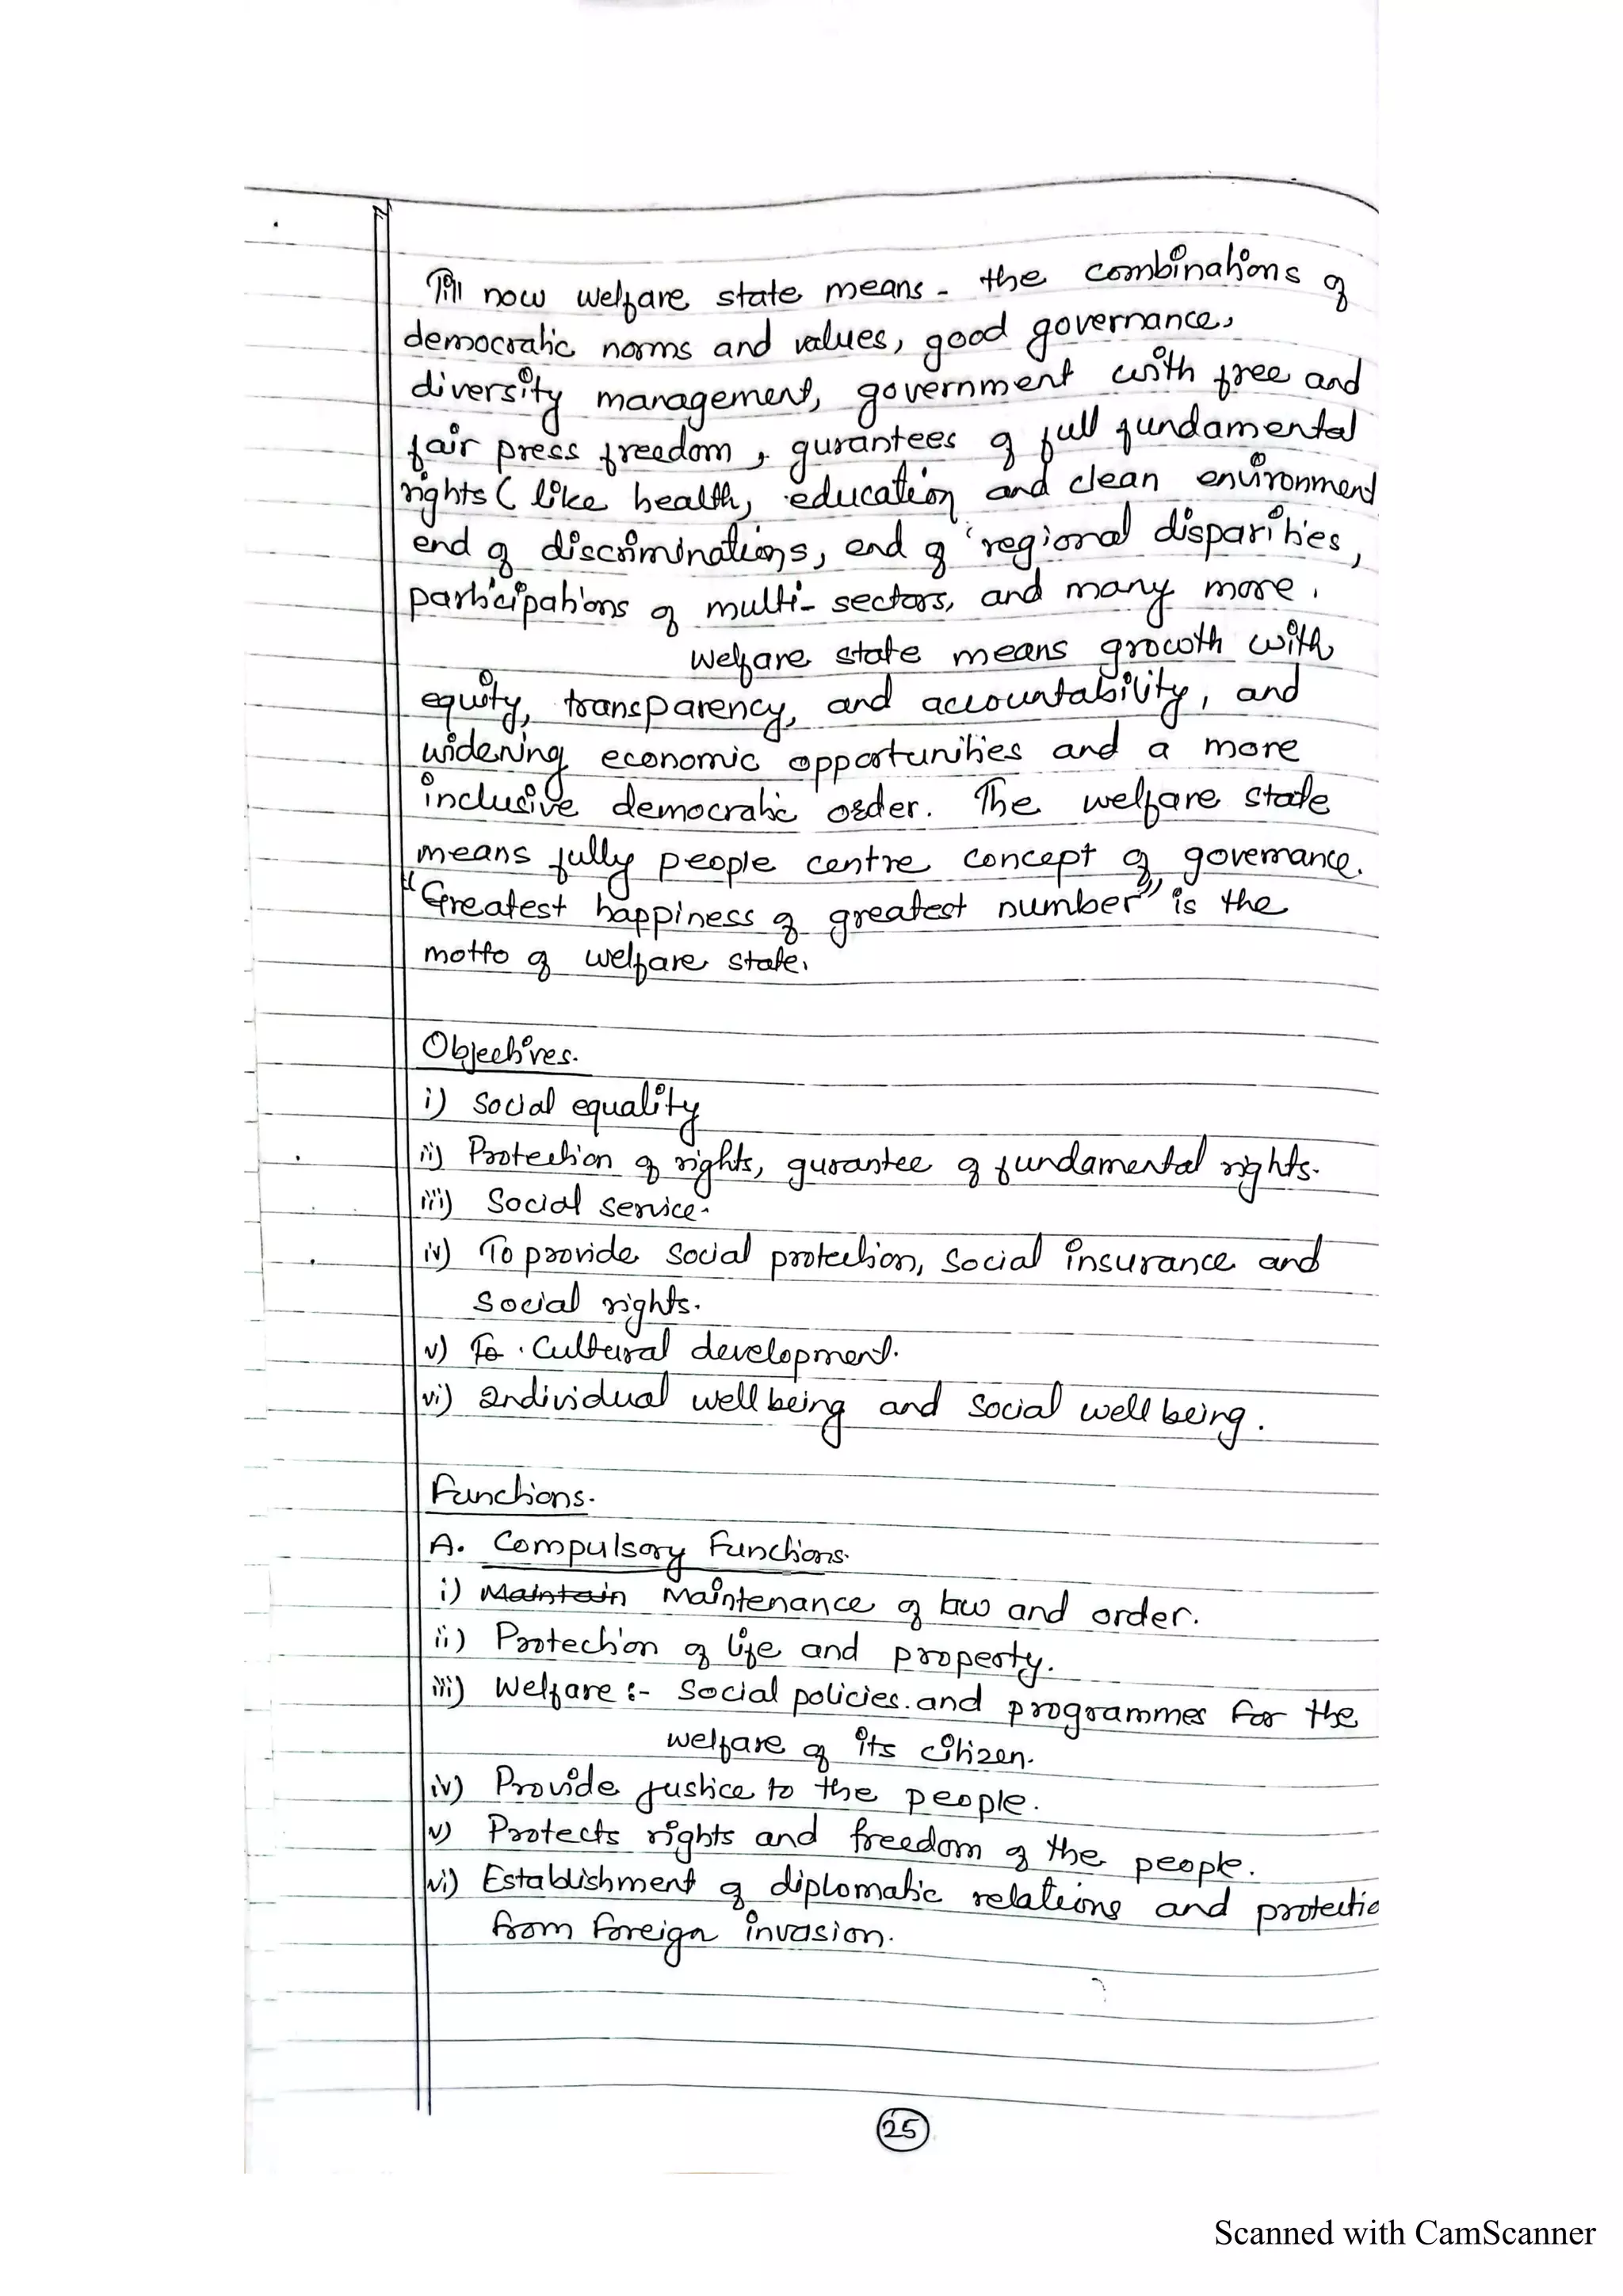 Till now welfare state means - the combinations of
democratic norms and values, good governance,
diversity management, government with free and
fair press freedom, gurantees of full fundamental
rights ( like health, education and clean environment
end of discriminations, end of regional disparities,
participations of multi- sectors, and many more.
Welfare state means growth with
equity, transparency, and accountability, and
widening economic opportunities and a more
inclusive democratic order. The welfare state
means fully people centre concept of governance.
"Greatest happiness of greatest number" is the
motto of welfare state.
Objectives.
i) Social equality
ii) Protection of rights, gurantee of fundamental rights.
iii) Social service.
iv) To provide social protection, social insurance and
social rights.
v) To . Cultural development.
vi) Individual well being and social well being.
Functions.
A. Compulsory Functions.
i) Maintain Maintenance of law and order.
ii) Protection of life and property.
iii) Welfare :- Social policies. and programmes for the
welfare of its citizen.
iv) Provide justice to the people.
v) Protects rights and freedom of the people.
vi) Establishment of diplomatic relations and protectio
from foreign invasion.
25
Scanned with CamScanner